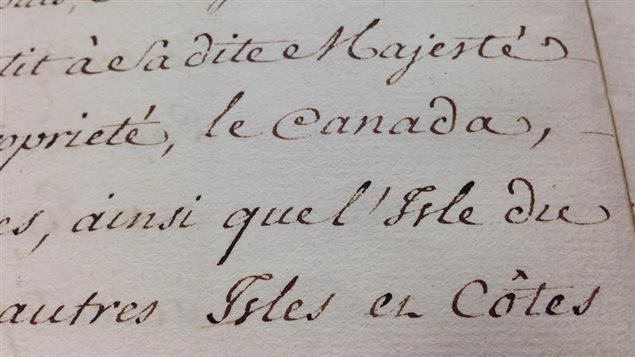 tit à Sa dite Majesté
opriété, le Canada,
es, ainsi que l'Isle du
autres Isles et Côtes